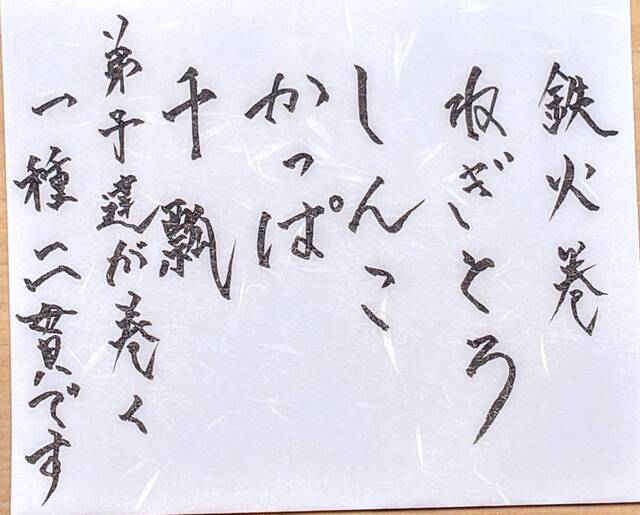 鉄火巻
ねぎとろ
しんこ
かっぱ
干瓢
弟子達が巻く
一種二貫です